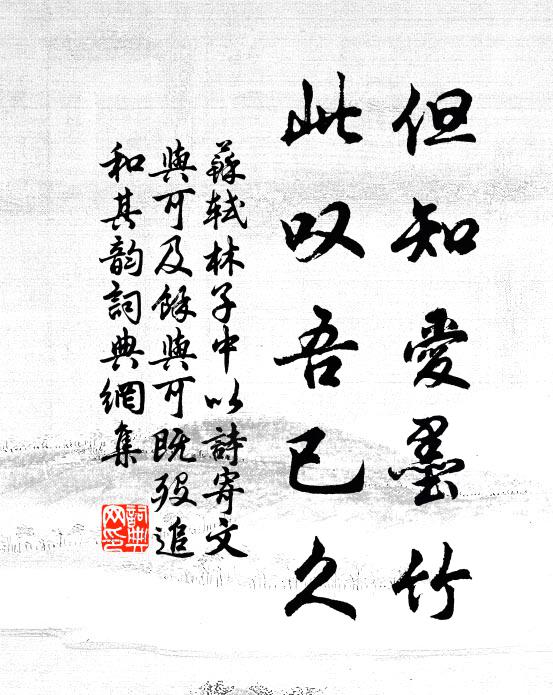 但知愛墨竹
此叹吾已久
蘇軾林子中以詩寄文
與可及餘與可既歿追
和其韵詞典網集
詞典
网印